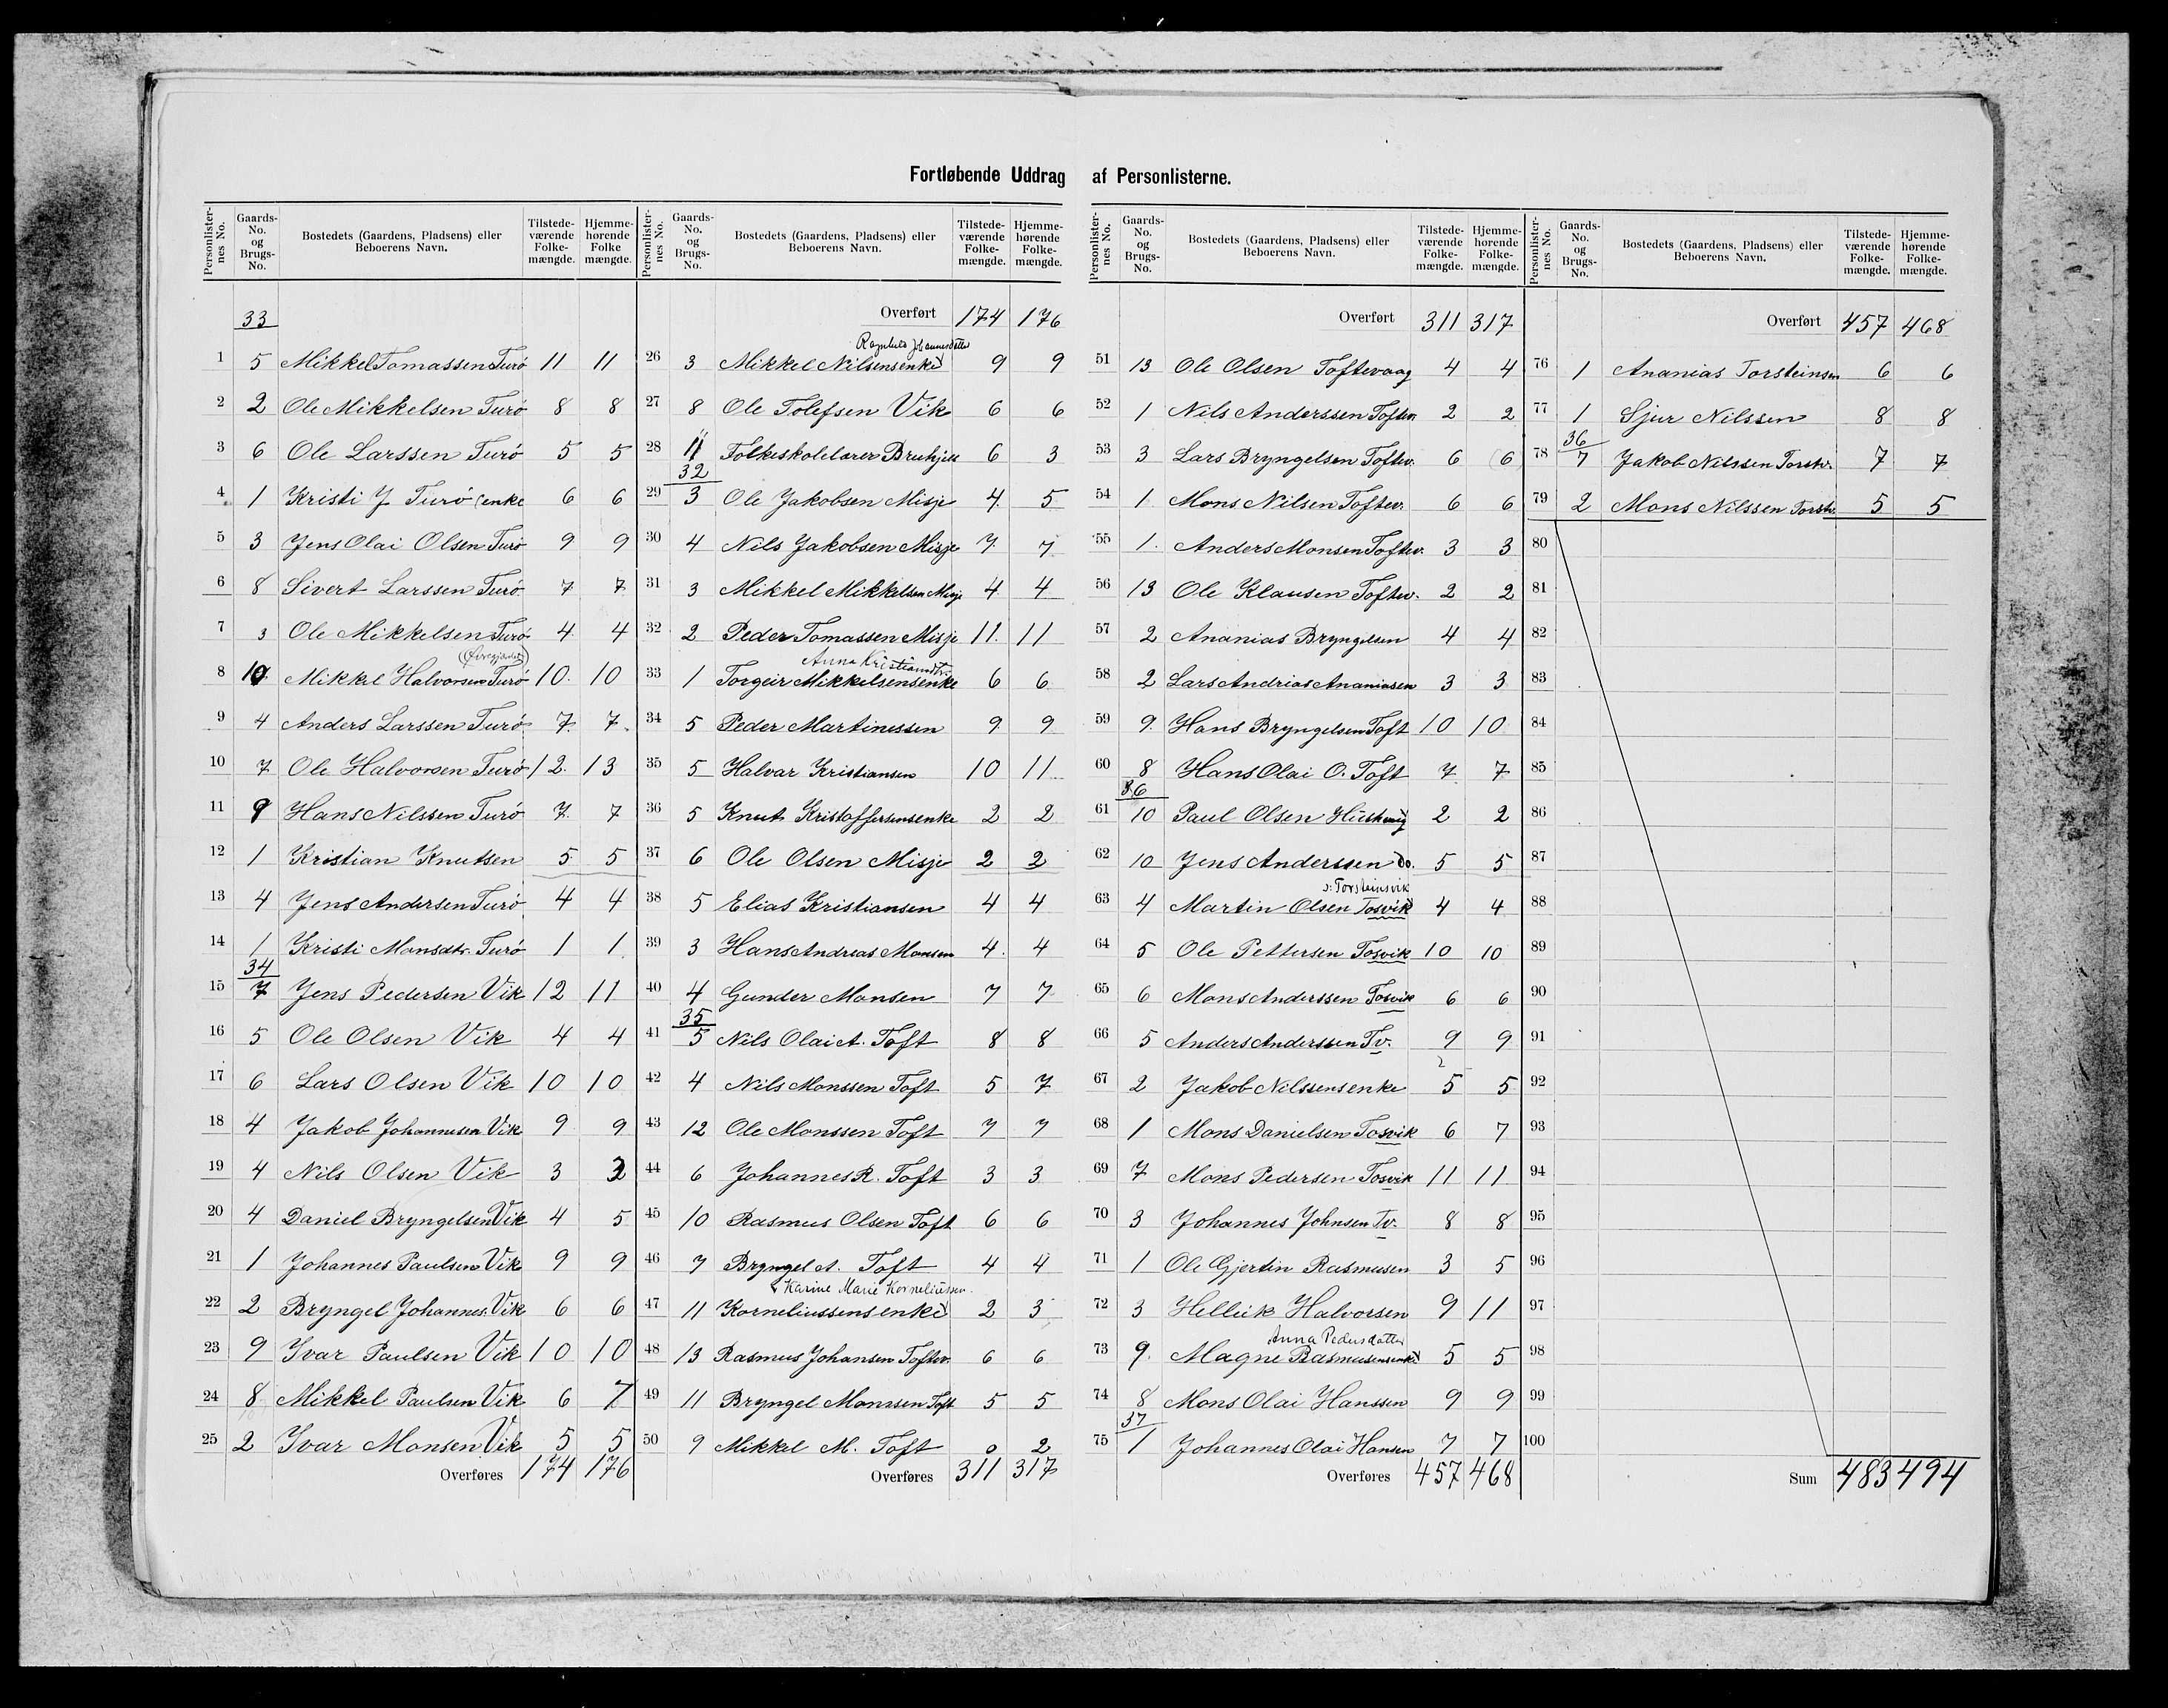 Fortløbende Uddrag af Personlisterne.
Personlister-nes No. Gaards-No. og Brugs-No. Bostedets (Gaardens, Pladsens) eller Beboerens Navn. Tilstede-værende Folke-mængde. Hjemme-hørende Folke mængde.
33
1 5 Mikkel Tomassen Turø 11 11
2 2 Ole Mikkelsen Turø 8 8
3 6 Ole Larssen Turø 5 5
4 1 Kristi J Turø (enke 6 6
5 3 Jens Olai Olsen Turø 9 9
6 8 Sivert Larssen Turø 7 7
7 3 Ole Mikkelsen Turø 4 4
8 10 Mikkel Halvorsen Turø 10 10
9 4 Anders Larssen Turø 7 7
10 7 Ole Halvorsen Turø 12 13
11 9 Hans Nilssen Turø 7 7
12 1 Kristian Knutsen 5 5
13 4 Jens Andersen Turø 4 4
14 1 Kristi Monsdtr. Turø 1 1
34
15 7 Jens Pedersen Vik 12 11
16 5 Ole Olsen Vik 4 4
17 6 Lars Olsen Vik 10 10
18 4 Jakob Johannesen Vik 9 9
19 4 Nils Olsen Vik 3
20 4 Daniel Bryngelsen Vik 4 5
21 1 Johannes Paulsen Vik 9 9
22 2 Bryngel Johannes. Vik 6 6
23 9 Ivar Paulsen Vik 10 10
24 8 Mikkel Paulsen Vik 6 7
25 2 Ivar Monsen Vik 5 5
Overføres 174 176
Personlister-nes No. Gaards-No. og Brugs-No. Bostedets (Gaardens, Pladsens) eller Beboerens Navn. Tilstede-værende Folke-mængde. Hjemme-hørende Folke-mængde.
Overført 174 176
Ragnhild Johannesdatter
26 3 Mikkel Nilsensenke 9 9
27 8 Ole Tolefsen Vik 6 6
28 11 Folkeskolelærer 6 3
32
29 3 Ole Jakobsen Misje 4 5
30 4 Nils Jakobsen Misje 7 7
31 3 Mikkel Mikkelsen Misje 4 4
32 2 Peder Tomassen Misje 11 11
Anna Kristiansdtr.
33 1 Torgeir Mikkelsensenke 6 6
34 5 Peder Martinussen 9 9
35 5 Halvar Kristiansen 10 11
36 5 Knut Kristoffersensenke 2 2
37 6 Ole Olsen Misje 2 2
38 5 Elias Kristiansen 4 4
39 3 Hans Andreas Monsen 4 4
40 4 Gunder Monsen 7 7
35
41 5 Nils Olai A. Toft 8 8
42 4 Nils Monssen Toft 5 7
43 12 Ole Monssen Toft 7 7
44 6 Johannes R. Toft 3 3
45 10 Rasmus Olsen Toft 6 6
46 7 Bryngel A. Toft 4 4
Karine Marie Korneliussen.
47 11 Korneliussensenke 2 3
48 13 Rasmus Johansen Toftev. 6 6
49 11 Bryngel Monssen Toft 5 5
50 9 Mikkel M. Toft 0 2
Overføres 311 317
Personlister-nes No. Gaards-No. og Brugs-No. Bostedets (Gaardens, Pladsens) eller Beboerens Navn. Tilstede-værende Folke-mængde. Hjemme-hørende Folke-mængde.
Overført 311 317
51 13 Ole Olsen Toftevaag 4 4
52 1 Nils Anderssen Toftev. 2 2
53 3 Lars Bryngelsen Toftev. 6 6
54 1 Mons Nilsen Toftev. 6 6
55 1. Anders Monsen Toftev. 3 3
56 13 Ole Klausen Toftev. 2 2
57 2 Ananias Bryngelsen 4 4
58 2 Lars Andrias Ananiasen 3 3
59 9. Hans Bryngelsen Toft 10 10
60 8 Hans Olai O. Toft 7 7
36
61 10 Paul Olsen 2 2
62 10 Jens Anderssen do. 5 5
ɔ: Torsteinsvik
63 4 Martin Olsen Tosvik 4 4
64 5 Ole Pettersen Tosvik 10 10
65 6 Mons Anderssen Tosvik 6 6
66 5 Anders Anderssen Tv. 9 9
67 2 Jakob Nilssensenke 5 5
68 1 Mons Danielsen Tosvik 6 7
69 7 Mons Pedersen Tosvik 11 11
70 3 Johannes Johnsen Tv. 8 8
71 1 Ole Gjertin Rasmusen 3 5
72 3 Hellik Halvorsen 9 11
Anna Pedersdatter
73 9. Magne Rasmusensenke 5 5
74 8 Mons Olai Hanssen 9 9
37
75 1 Johannes Olai Hansen 7 7
Overføres 457 468
Personlister-nes No. Gaards-No. og Brugs-No. Bostedets (Gaardens, Pladsens) eller Beboerens Navn. Tilstede-værende Folke-mængde. Hjemme-hørende Folke-mængde.
Overført 457 468
76 1 Ananias Torsteinsen 6 6
77 1 Sjur Nilssen 8 8
36
78 7 Jakob Nilssen Torstv. 7 7
79 2 Mons Nilssen Torstv. 5 5
80
81
82
83
84
85
86
87
88
89
90
91
92
93
94
95
96
97
98
99
100
Sum 483 494